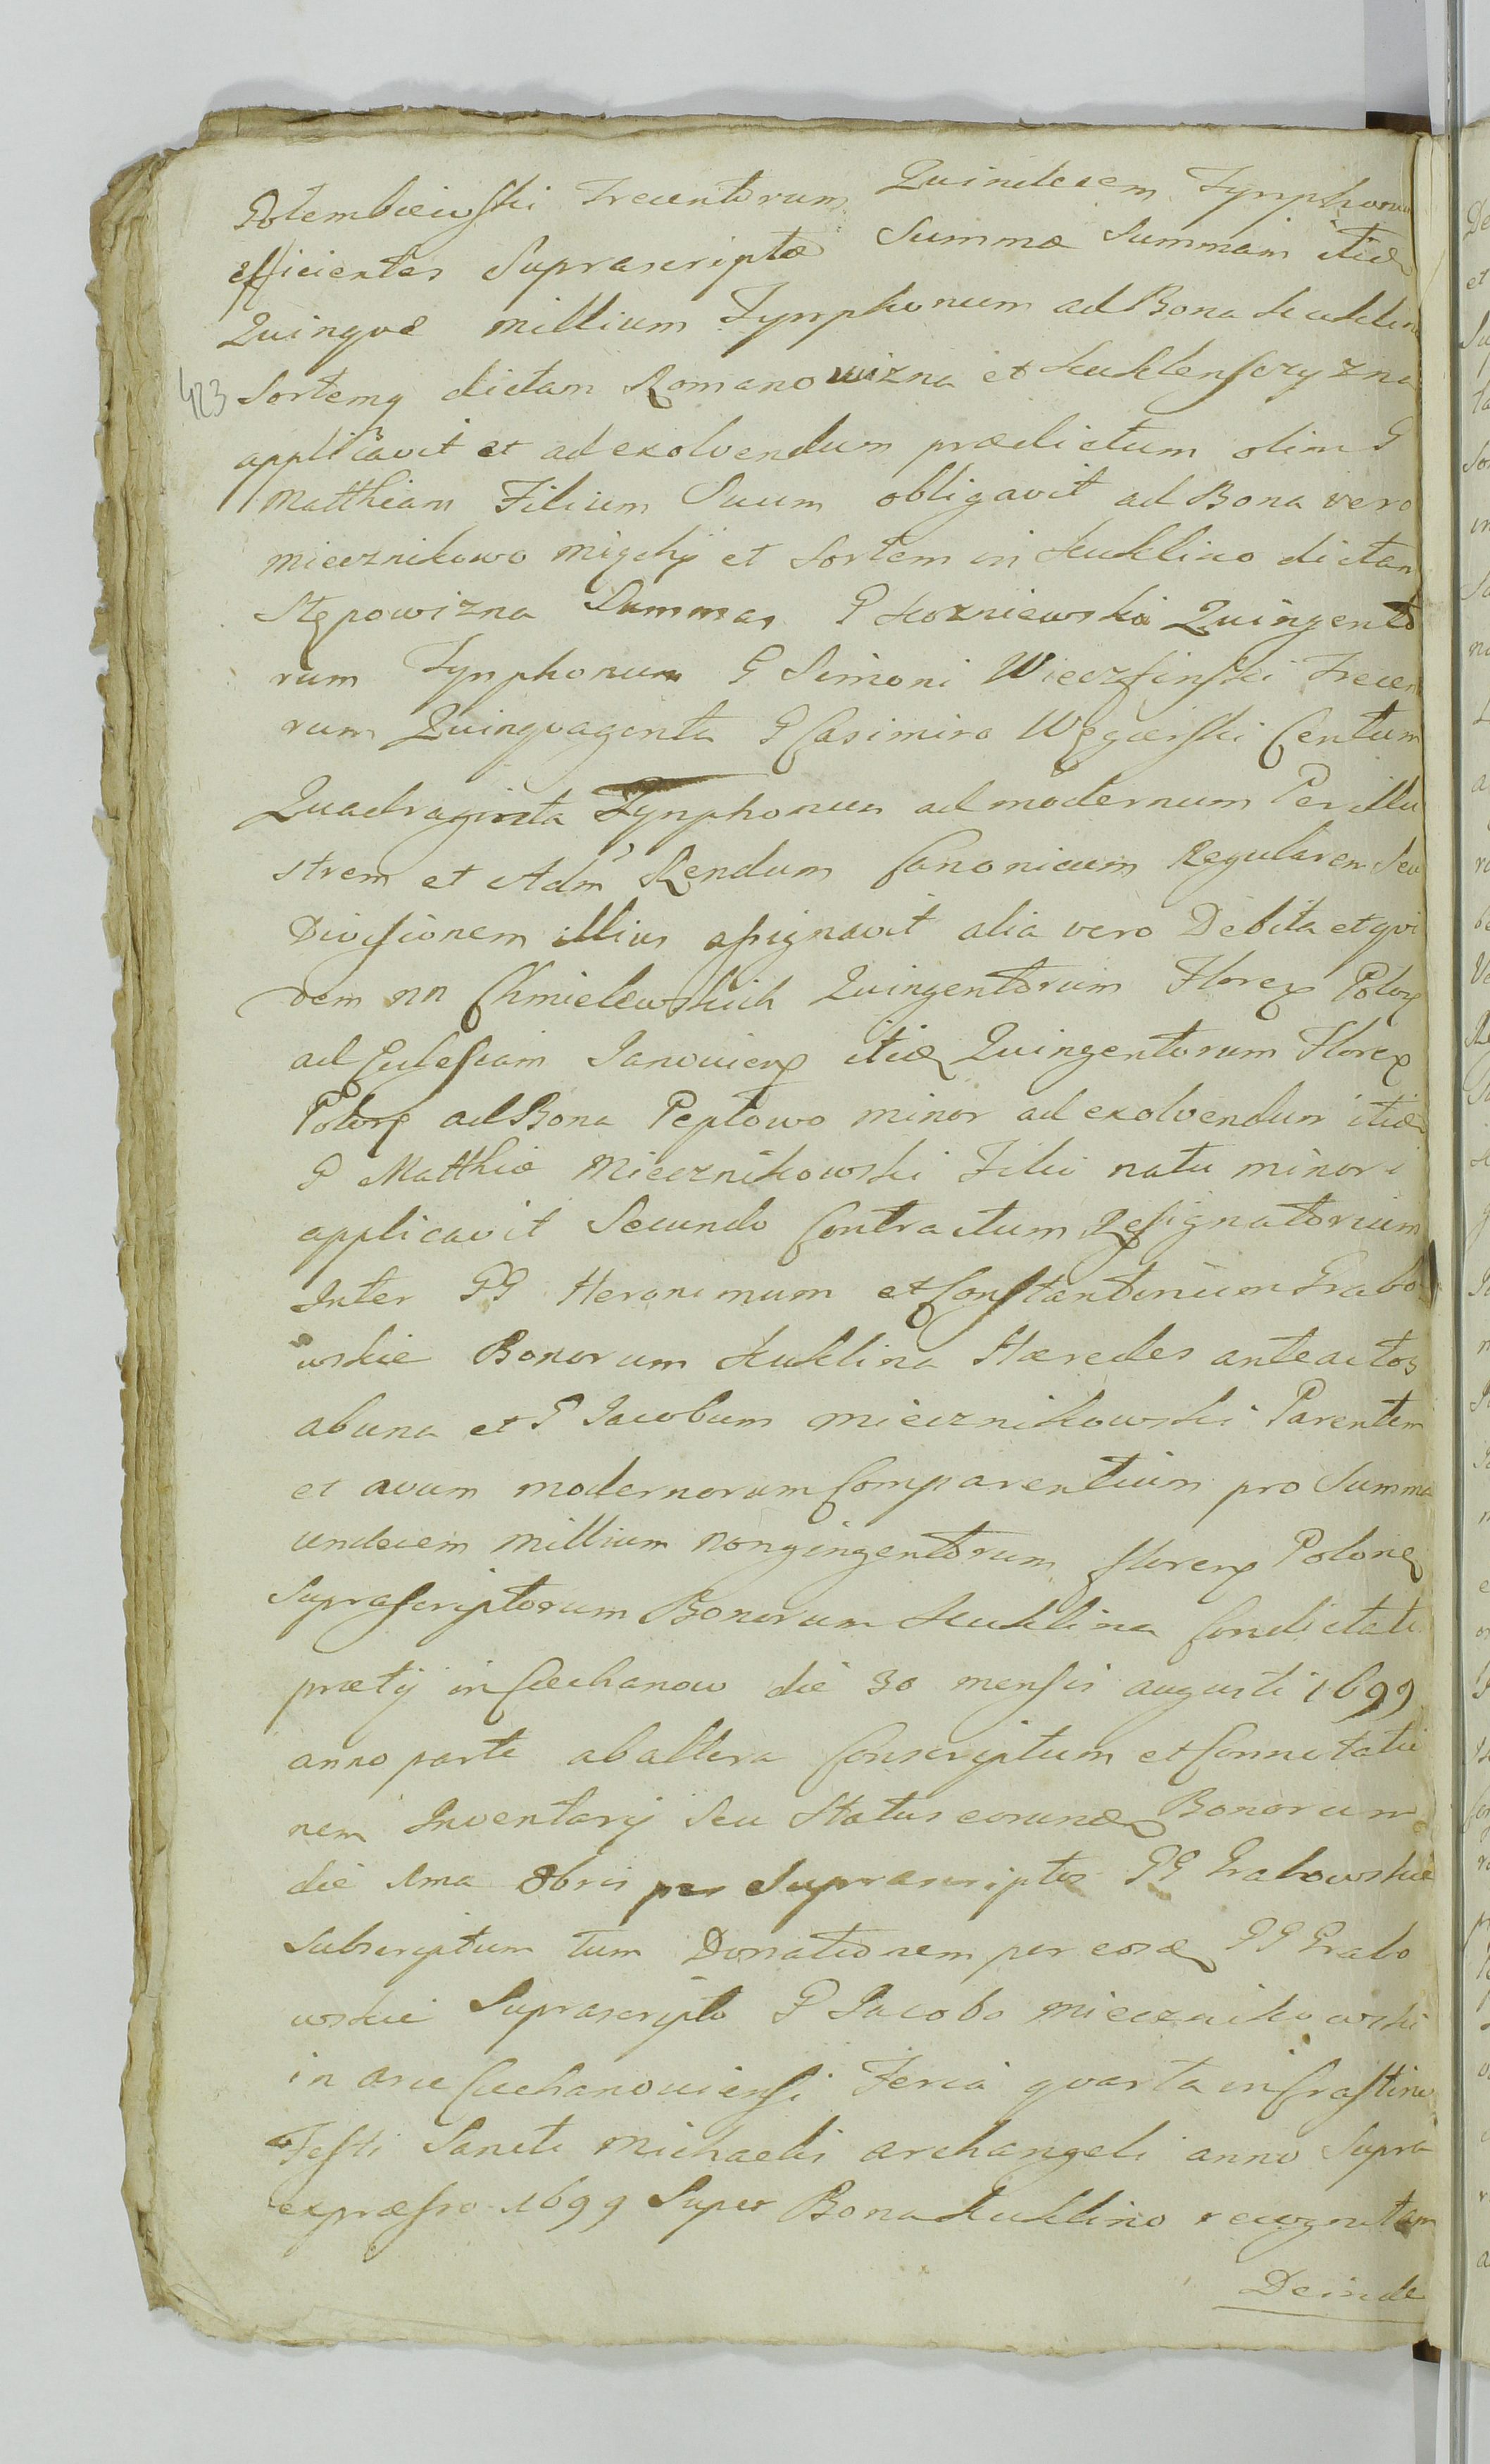 Golembiewski Trecentorum Quindecem Tynphonum
efficientes Suprascriptæ Summæ Summam itid
Quinqve millium Tynphonum ad Bona Kuklino
423
Sortemq dictam Romanowizna et Kuklensczyzna
applicavit et ad exolvendum prædictum olim G
Matthiam Filium Suum obligavit ad Bona vero
Miecznikowo Migchy et Sortem in Kuklino dictam
Stępowizna Summas G Kozniewski Quingento
rum Tynphonum G Simoni Wieczfinski Trecen
rum Quinqvaginta G Casimiro Węgierski Centum
Quadraginta Tynphonum ad modernum Perillu
strem et Adm Rendum Canonicum Regularem Seu
Divisionem illius assignavit alia vero Debita et qvi
dem nn Chmielewskich Quingentorum Floren Polon
ad Ecclesiam Janoviens itid Quingentorum Floren
Polon ad Bona Peptowo minor ad exolvendum itid
G Matthiæ Miecznikowski Filii natu minori
applicavit Secundo Contractum Resignatorium
Inter GG Heronimum et Constantinum Grabo
wskie Bonorum Kuklina Hæredes anteactos
ab una et G Jacobum Miecznikowski Parentem
et avum modernorum Comparentium pro Summa
undecem Millium nongingentorum floren Polone
Suprascriptorum Bonorum Kuklina Condictati
prætij in Ciechanow die 30 mensis augusti 1699
anno parte ab altera Conscriptum et Connotatio
nem Inventarij Seu Status eorund Bonorum
die 1ma 8bris per Suprascriptos GG Grabowskie
Subscriptum tum Donationem per eosd GG Grabo
wskie Suprascripto G Jacobo Miecznikowski
in Arce Ciechanoviensi Feria qvarta in Crastino
Festi Sancti Michaelis Archangeli anno Supra
expresso 1699 Super Bona Kuklino recognitam
Deinde